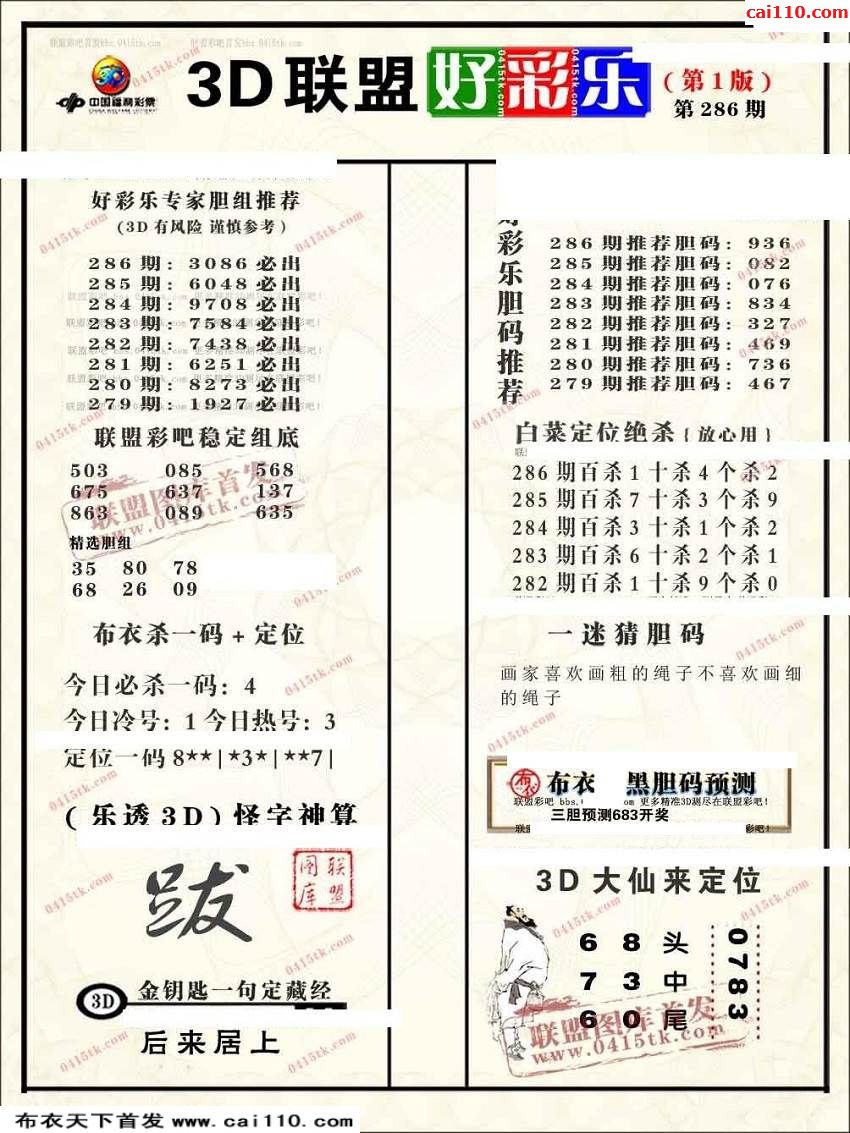 cai110.com
中国福利彩票
3D联盟好彩乐
(第1版)
第286期
好彩乐专家胆组推荐
(3D有风险 谨慎参考)
286期:3086必出
285期:6048必出
284期:9708必出
283期:7584必出
282期:7438必出
281期:6251必出
280期:8273必出
279期:1927必出
联盟彩吧稳定组底
503 085 568
675 637 137
863 089 635
联盟图库首发
www.0415tk.com
精选胆组
35 80 78
68 26 09
布衣杀一码+定位
今日必杀一码:4
今日冷号:1 今日热号:3
定位一码8**|*3*|**7|
(乐透3D)怪字神算
跋
联盟图库
3D 金钥匙一句定藏经
后来居上
彩乐胆码推荐
286期推荐胆码:936
285期推荐胆码:082
284期推荐胆码:076
283期推荐胆码:834
282期推荐胆码:327
281期推荐胆码:469
280期推荐胆码:736
279期推荐胆码:467
白菜定位绝杀{放心用}
286期百杀1十杀4个杀2
285期百杀7十杀3个杀9
284期百杀3十杀1个杀2
283期百杀6十杀2个杀1
282期百杀1十杀9个杀0
一迷猜胆码
画家喜欢画粗的绳子不喜欢画细
的绳子
布衣 黑胆码预测
联盟彩吧 bbs. om 更多精准3D测尽在联盟彩吧!
三胆预测683开奖
彩吧!
3D大仙来定位
6 8 头
7 3 中
6 0 尾
0783
联盟图库首发
www.0415tk.com
布衣天下首发 www.cai110.com